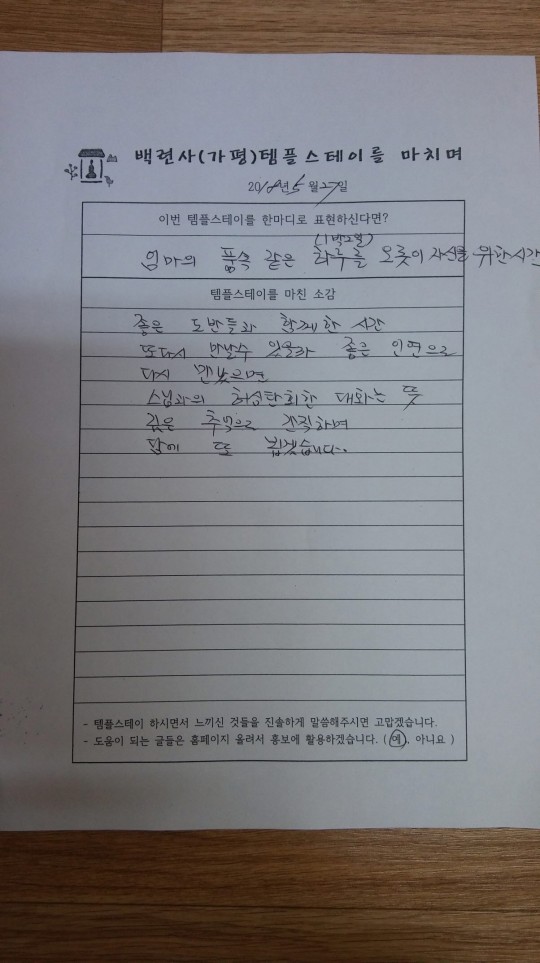 백련사(가평)템플스테이를 마치며
2018년 5월 27일
이번 템플스테이를 한마디로 표현하신다면?
(1박2일)
엄마의 품속 같은 하루를 오롯이 자신을 위한시간
템플스테이를 마친 소감
좋은 도반들과 함께한 시간
또다시 만날수 있을라 좋은 인연으로
다시 맺었으면
스님과의 허심탄회한 대화는 뜻
깊은 추억으로 간직하며
담에 또 뵙겠습니다.
- 템플스테이 하시면서 느끼신 것들을 진솔하게 말씀해주시면 고맙겠습니다.
- 도움이 되는 글들은 홈페이지 올려서 홍보에 활용하겠습니다. ( 예, 아니요 )